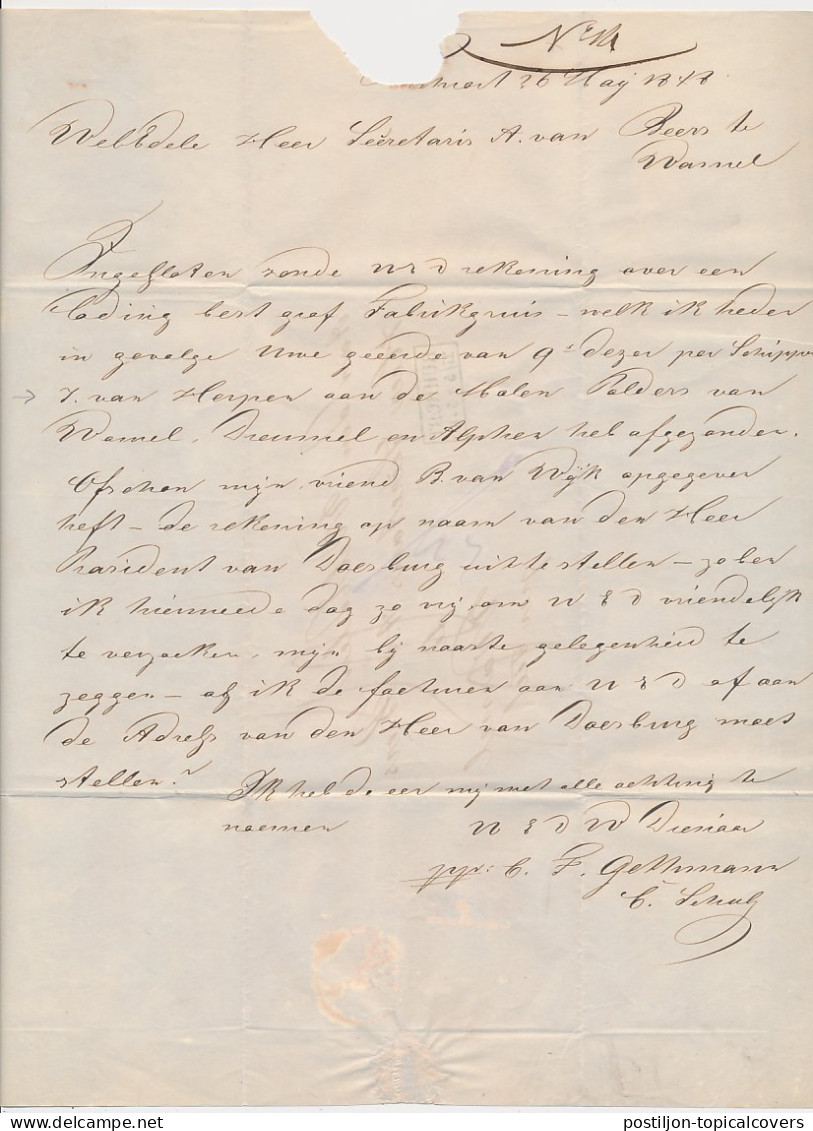 26 Maij 1848
WelEdele Heer Secretaris A. van Beers te
Wamel
Ingesloten zende UED rekening over een
lading best graf Fabrikgruis – welk ik heden
in gevolge Uwe geeerde van 9r dezer per Schipper
J. van Herpen aan de Molen Polders van
Wamel, Dreumel en Alphen heb afgezonden.
Ofschon mijn vriend B. van Wijk opgegeven
heft – de rekening op naam van den Heer
President van Doesburg uit te stellen – zo ben
ik hiermede dog zo vrij, om UED vriendelijk
te verzoeken, mijn bij naaste gelegenheid te
zeggen – of ik de facturen aan UED of aan
de Adress van den Heer van Doesburg moet
stellen.
Ik heb de eer mij met alle achting te
noemen UEDW Dienaar
ppr: C. F. Gethmann
C. Schulz
postiljon-topicalcovers